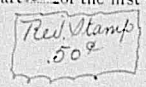 of the first
Rev Stamp
.50¢